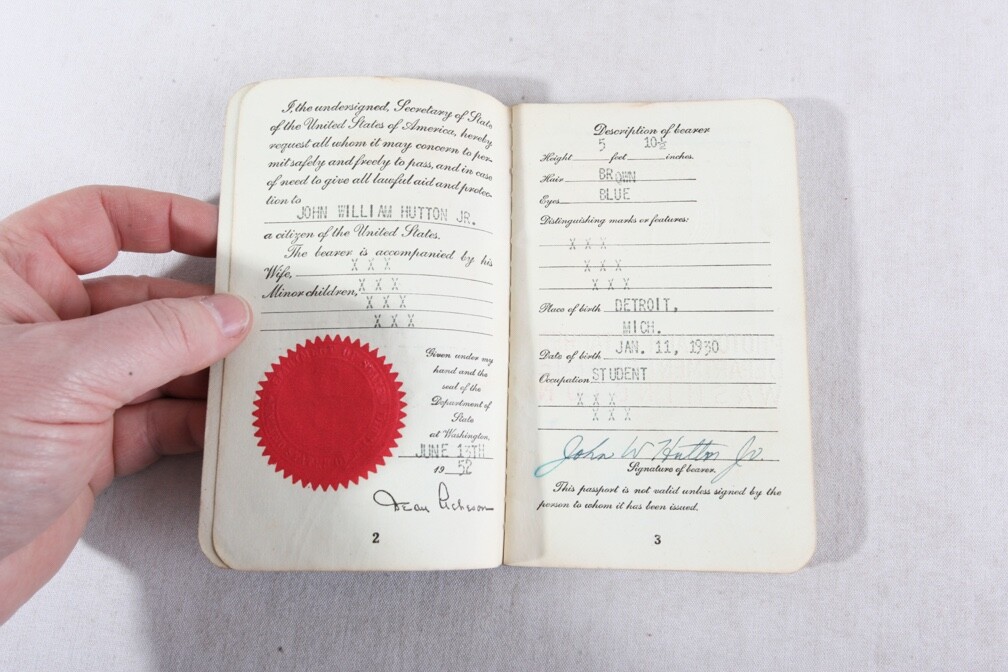 I, the undersigned, Secretary of State
of the United States of America, hereby
request all whom it may concern to per-
mit safely and freely to pass, and in case
of need to give all lawful aid and protec-
tion to
JOHN WILLIAM HUTTON JR.
a citizen of the United States.
The bearer is accompanied by his
Wife, X X X
Minor children, X X X
X X X
X X X
Given under my
hand and the
seal of the
Department of
State
at Washington,
JUNE 13TH
19 52
Dean Acheson
2
Description of bearer
5 10½
Height feet inches.
Hair BROWN
Eyes BLUE
Distinguishing marks or features:
X X X
X X X
X X X
Place of birth DETROIT,
MICH.
Date of birth JAN. 11, 1930
Occupation STUDENT
X X X
X X X
John W Hutton Jr.
Signature of bearer.
This passport is not valid unless signed by the
person to whom it has been issued.
3